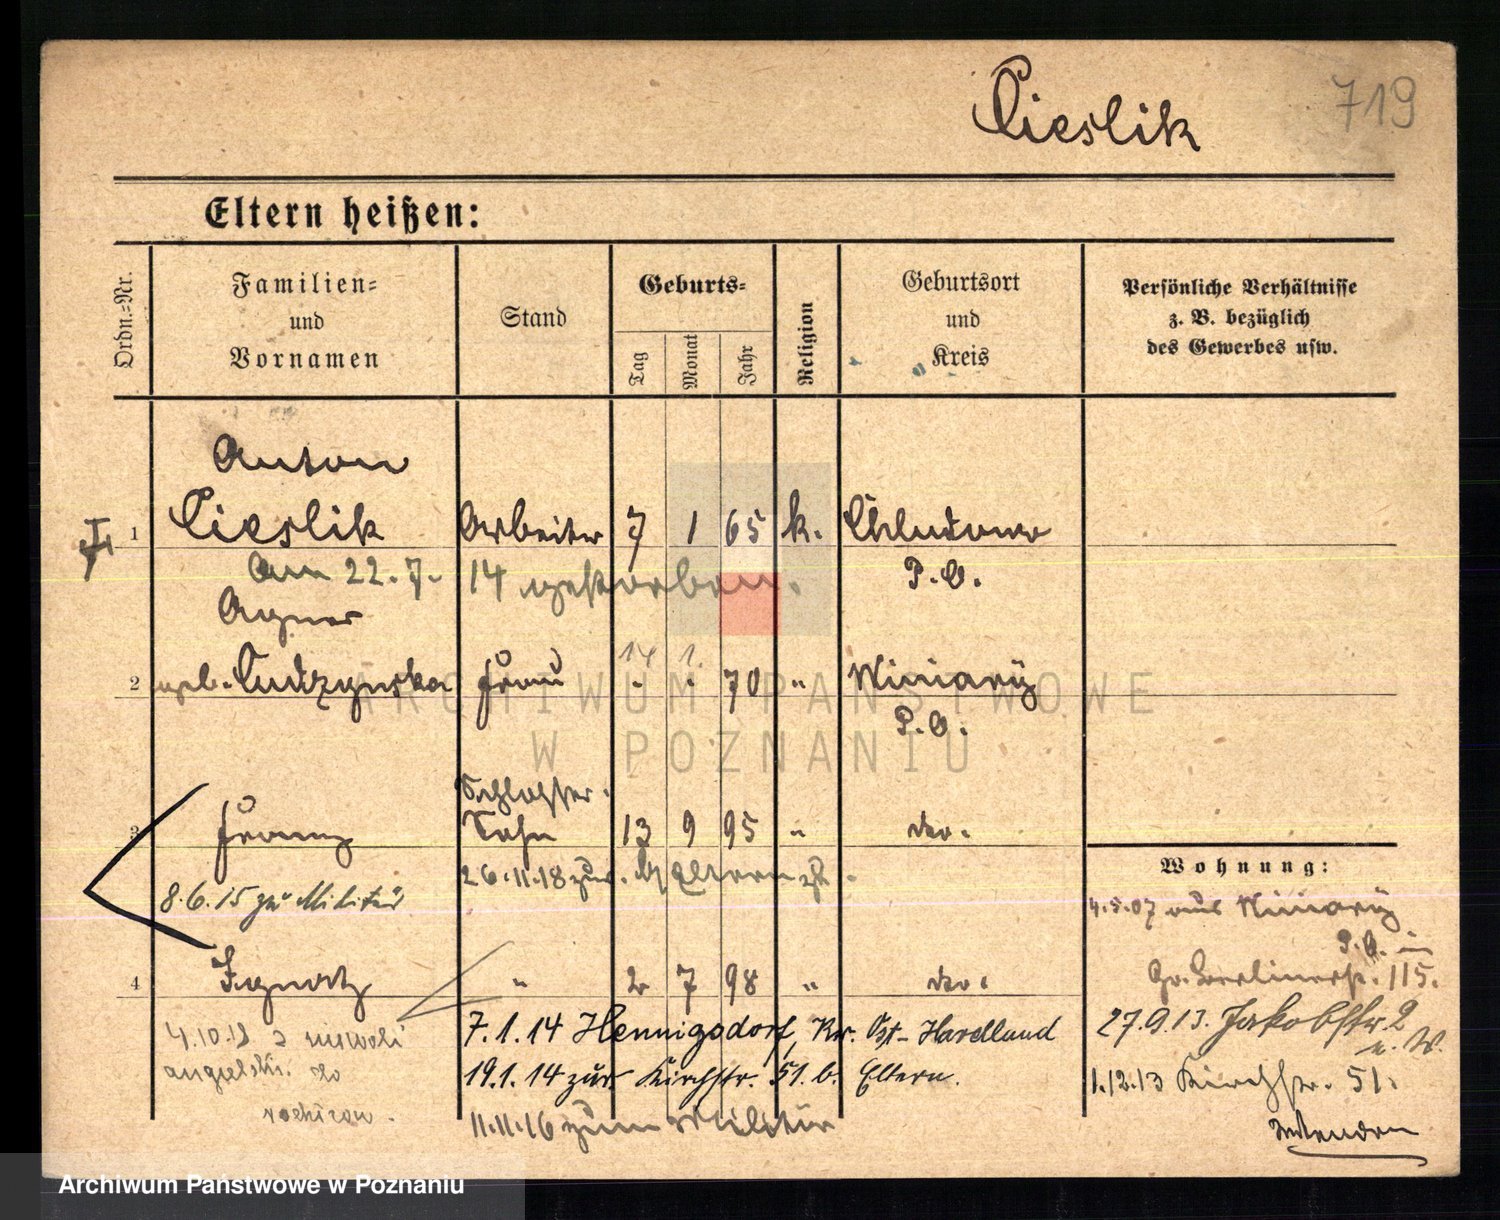 Cieslik
719
Eltern heißen:
Ordn.-Nr.
Familien-
und
Vornamen
Stand
Geburts-
Tag
Monat
Jahr
Religion
Geburtsort
und
Kreis
Persönliche Verhältnisse
z. B. bezüglich
des Gewerbes usw.
Anton
1 Cieslik Arbeiter 7 1 65 k. Chludowo
Am 22.7. 14 gestorben. P.O.
Agnes
14 1.
2 geb. Frau 70 " Winiary
P.O.
Schlosser.
3 Franz Sohn 13 9 95 " do.
26.11.18 zur. Eltern
8.6.15 zu Militär
Wohnung:
4.5.07 aus Winiary
P.O. in
4 Ignatz " 2 7 98 " do.
Gr. Berlinerst. 115.
4.10.18 z niewoli
angielski. do
7.1.14 Hennigsdorf, Kr. Ost-Havelland
27.9.13. Jakobstr. 2
u. W.
19.1.14 zur Kirchstr. 51. b. Eltern.
1.12.13 Kirchstr. 51.
11.11.16 zum Militär
ARCHIWUM PAŃSTWOWE
W POZNANIU
Archiwum Państwowe w Poznaniu